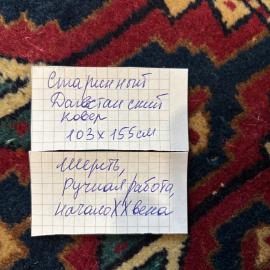 Старинный
Дагестанский
ковер
103х155см
Шерсть,
Ручная работа,
Начало XX века